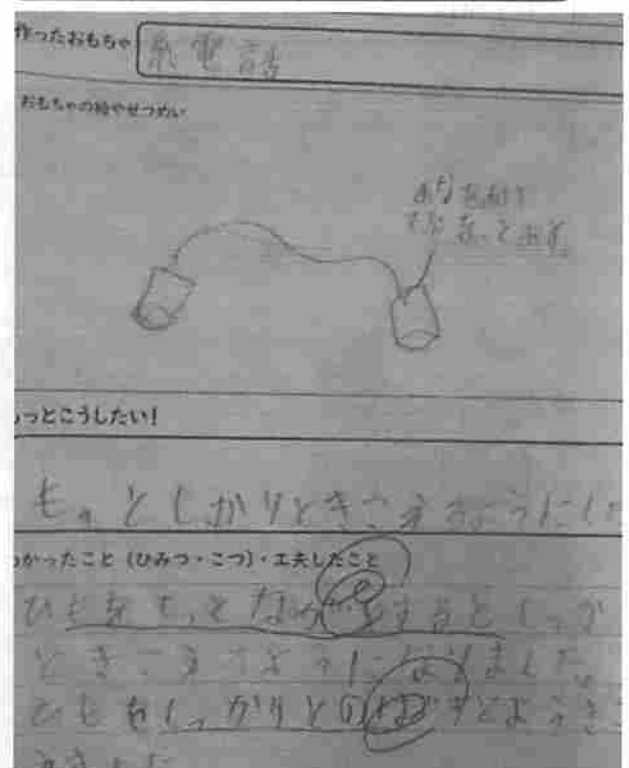 作ったおもちゃ
糸電話
おもちゃの絵やせつめい
あなをあけて
をとおす。
っとこうしたい!
もっとしかりときこえるようにした
わかったこと(ひみつ・こつ)・工夫したこと
ひもをもっとながくするとしっか
ときこえるようになりました。
ひもをしっかりとのばすとよくき